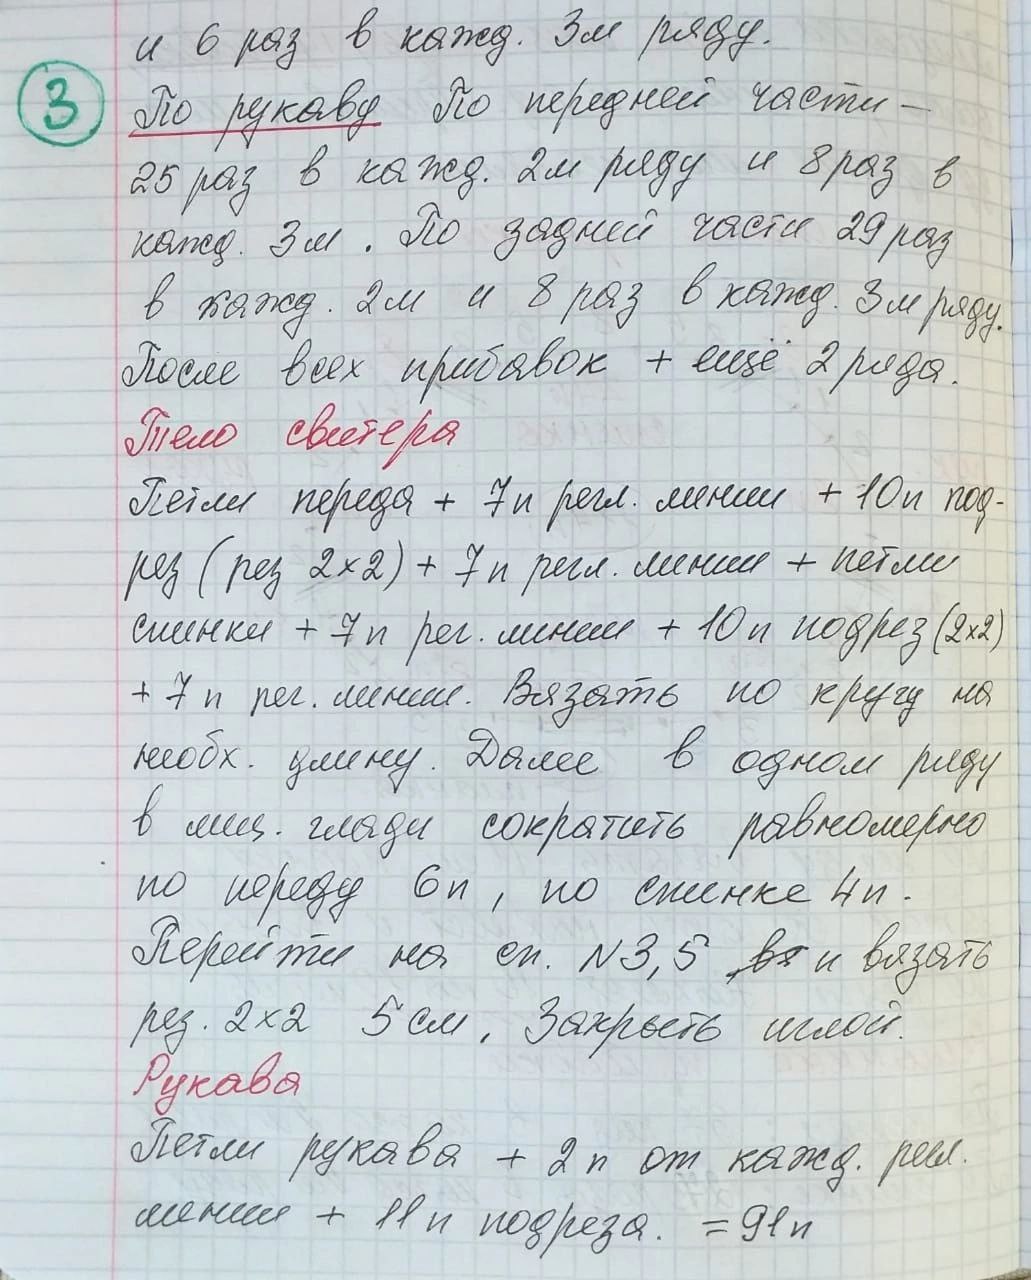 и 6 раз в кажд. 3м ряду.
3
По рукаву По передней части –
25 раз в кажд. 2м ряду и 8 раз в
кажд. 3м. По задней части 29 раз
в кажд. 2м и 8 раз в кажд. 3м ряду.
После всех прибавок + ещё 2 ряда.
Тело свитера
Петли переда + 7п регл. линии + 10п под-
рез (рез 2×2) + 7п регл. линии + петли
спинки + 7п рег. линии + 10п подрез (2×2)
+ 7п рег. линии. Вязать по кругу на
необх. длину. Далее в одном ряду
в лиц. глади сократить равномерно
по переду 6п, по спинке 4п.
Перейти на сп. N3,5 и вязать
рез. 2×2 5 см. Закрыть иглой.
Рукава
Петли рукава + 2п от кажд. регл.
линии + 11п подреза. = 91п